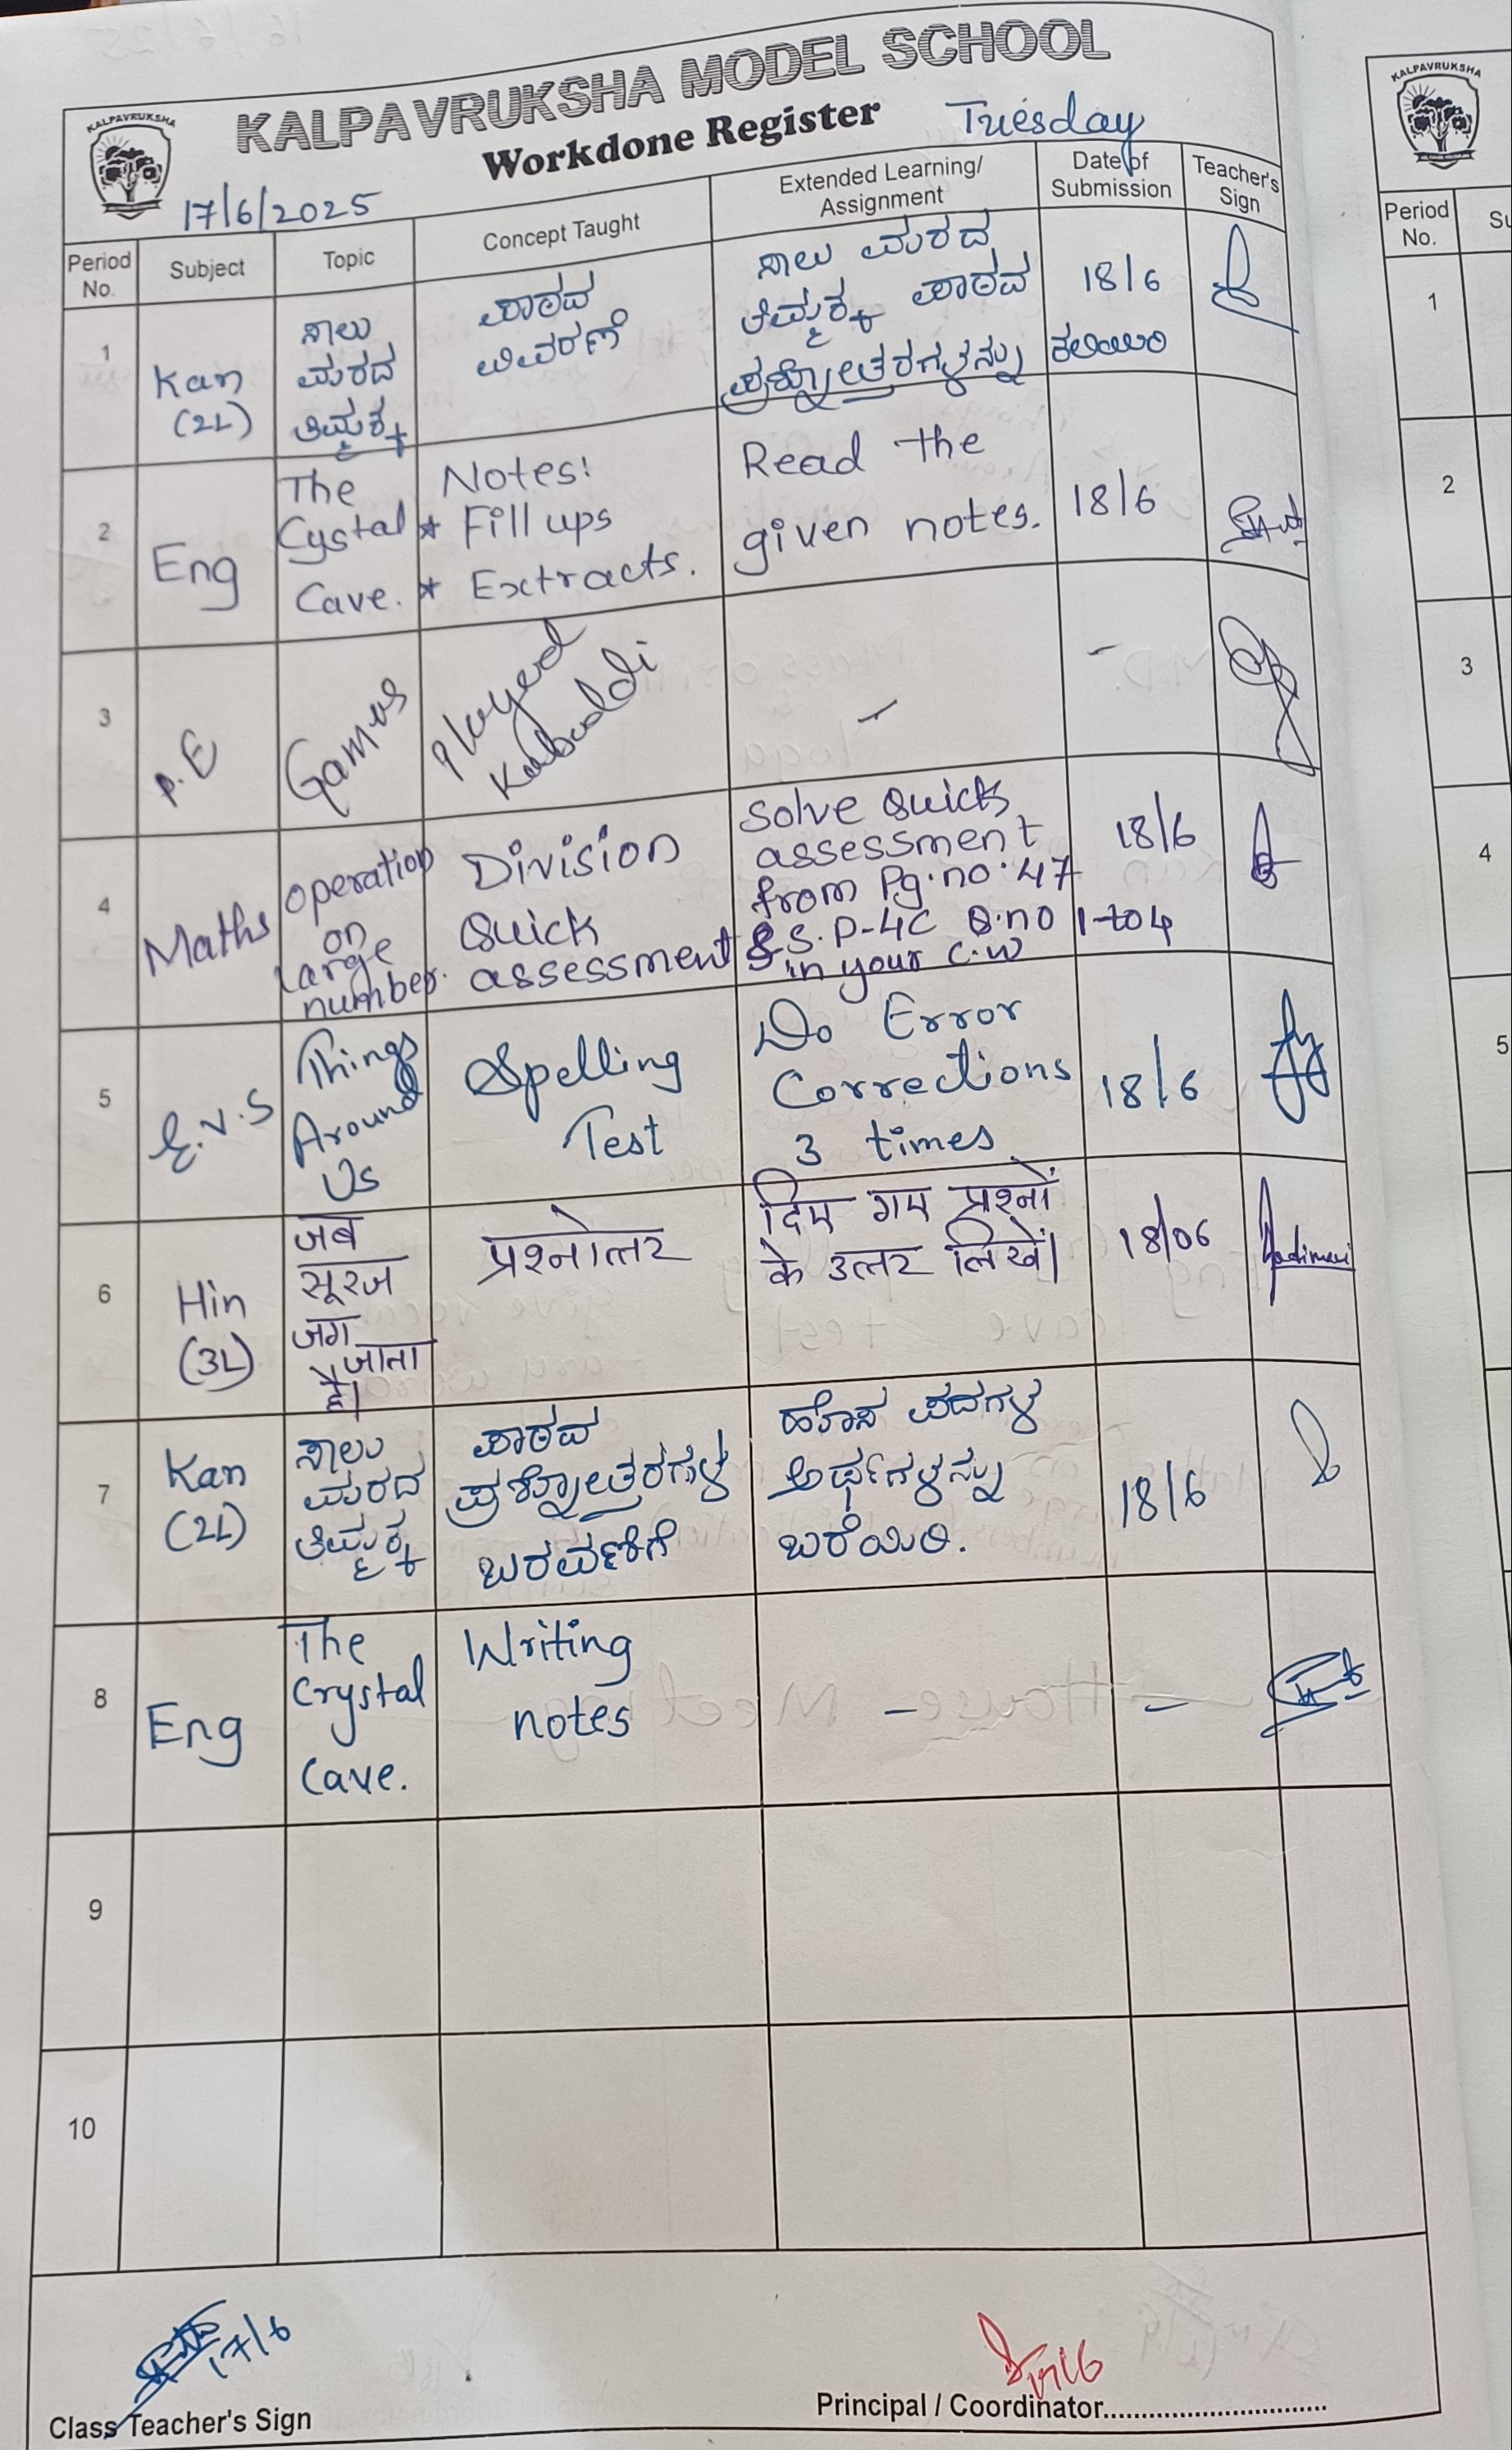 KALPAVRUKSHA MODEL SCHOOL
KALPAVRUKSHA
Workdone Register
Tuesday
17/6/2025
Period No.
Subject
Topic
Concept Taught
Extended Learning/ Assignment
Date of Submission
Teacher's Sign
1
Kan (2L)
ಸಾಲು
ಮರದ
ತಿಮ್ಮಕ್ಕ
ಪಾಠದ
ವಿವರಣೆ
ಸಾಲು ಮರದ
ತಿಮ್ಮಕ್ಕ ಪಾಠದ
ಪ್ರಶ್ನೋತ್ತರಗಳನ್ನು ಕಲಿಯಿರಿ
18/6
2
Eng
The
Cystal
Cave.
Notes:
* Fill ups
* Extracts.
Read the
given notes.
18/6
3
P.E
Games
Played
Kabaddi
-
-
4
Maths
operation
on
large
number.
Division
Quick
assessment
Solve Quick
assessment
from Pg.no.47
& S.P-4C Q.no 1 to 4
in your C.W
18/6
5
E.V.S
Things
Around
Us
Spelling
Test
Do Error
Corrections
3 times
18/6
6
Hin
(3L)
जब
सूरज
जग
जाता
है।
प्रश्नोत्तर
दिए गए प्रश्नों
के उत्तर लिखें।
18/06
7
Kan
(2L)
ಸಾಲು
ಮರದ
ತಿಮ್ಮಕ್ಕ
ಪಾಠದ
ಪ್ರಶ್ನೋತ್ತರಗಳ
ಬರವಣಿಗೆ
ಹೊಸ ಪದಗಳ
ಅರ್ಥಗಳನ್ನು
ಬರೆಯಿರಿ.
18/6
8
Eng
The
Crystal
Cave.
Writing
notes
-
-
9
10
17/6
Class Teacher's Sign
17/6
Principal / Coordinator..............................
KALPAVRUKSHA
Period
No.
Su
1
2
3
4
5